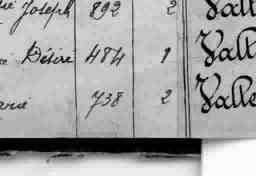 Joseph 892 2 Vall
Désiré 484 1 Vall
738 2 Valle